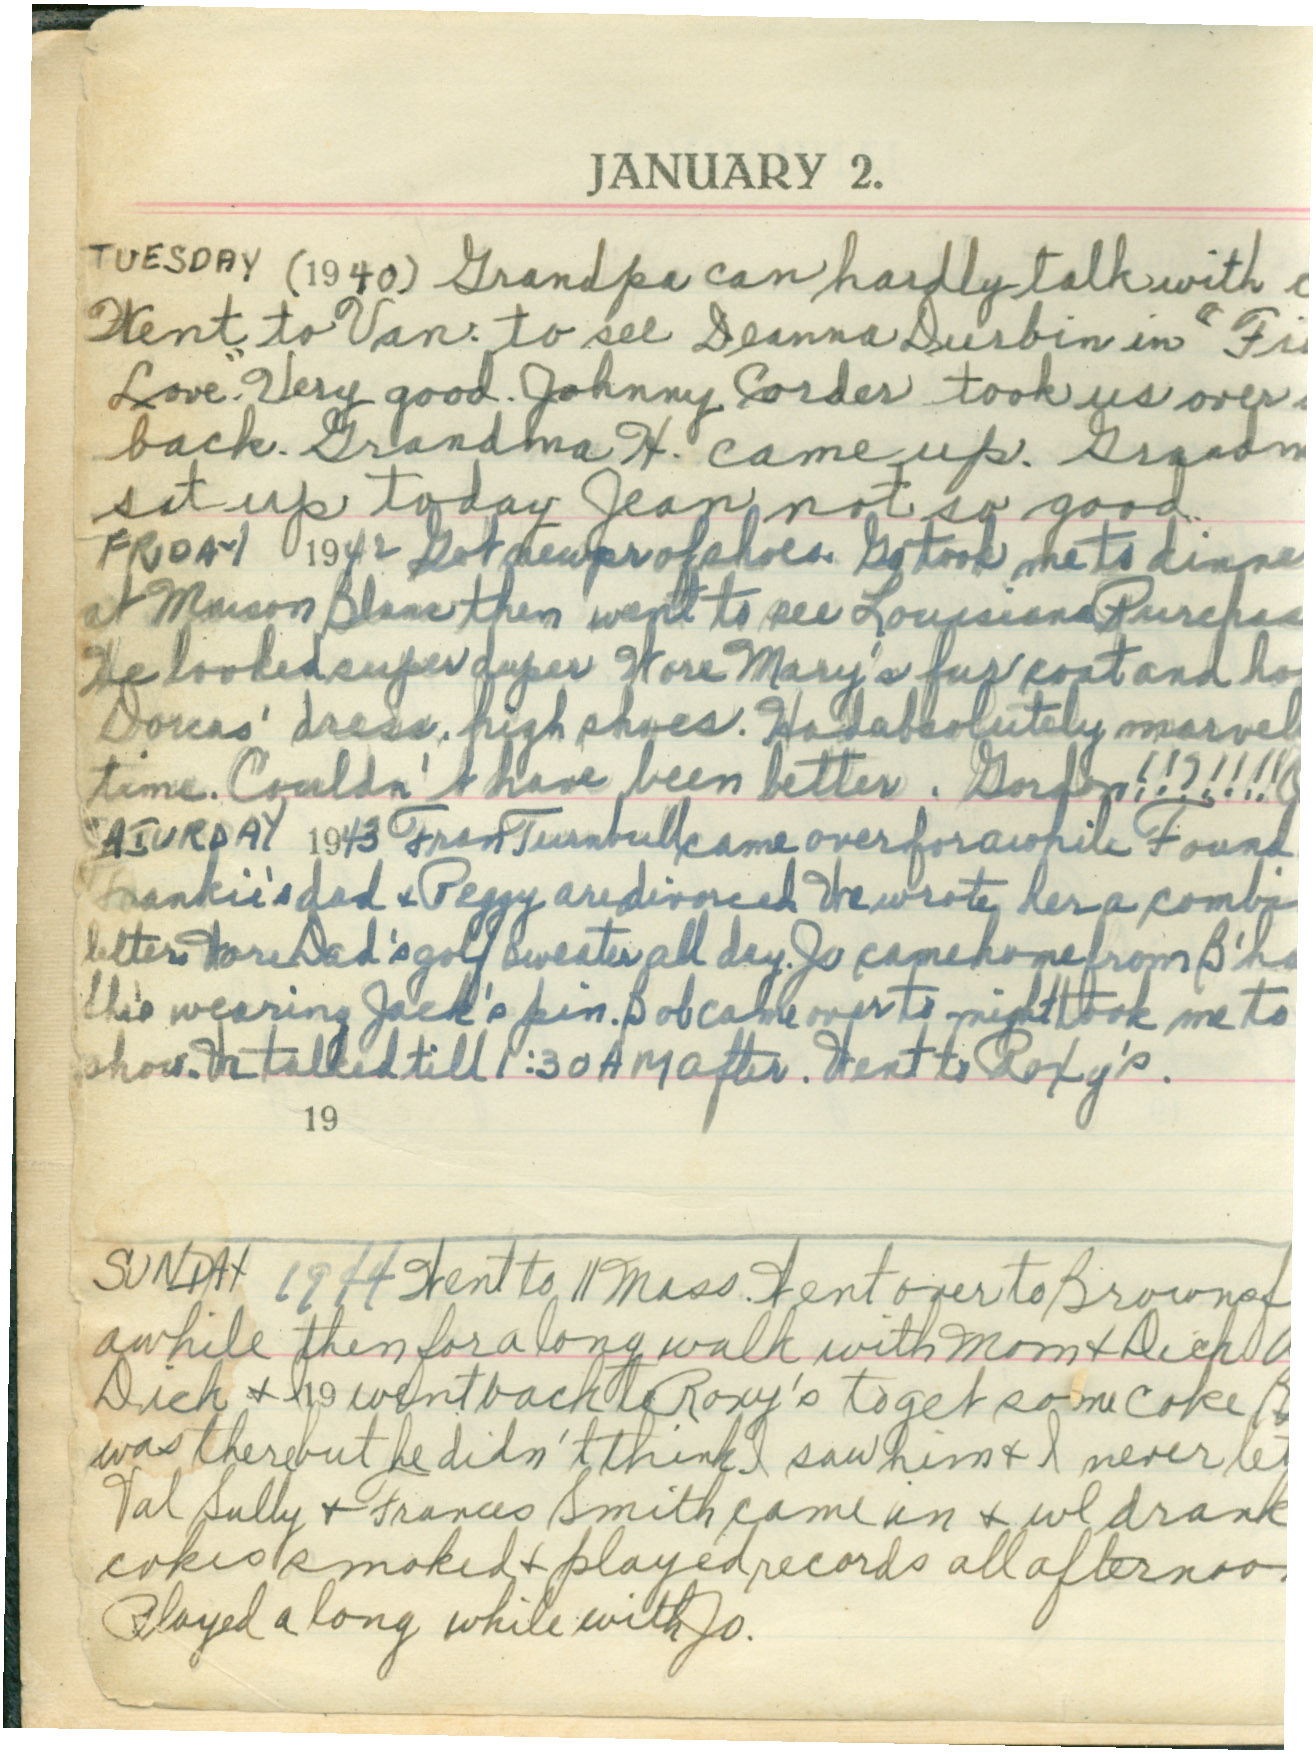 JANUARY 2.
TUESDAY (1940) Grandpa can hardly talk with c
Went to Van. to see Deanna Durbin in "Fir
Love". Very good. Johnny Corder took us over
back. Grandma H. came up. Grandm
sat up today Jean not so good.
FRIDAY 1942 Got new pr of shoes. Go took me to dinne
at Maison Blanc then went to see Louisiana Purchas
He looked super duper Wore Mary's fur coat and ho
Dorcas' dress, high shoes. Had absolutely marvel
time. Couldn't have been better. Gordon!!?!!!!
SATURDAY 1943 Fran Turnbull came over for awhile Found
Frankie's dad & Peggy are divorced We wrote her a combi
letter. Wore Dad's golf sweater all day. Jo came home from B'ha
wearing Jack's pin. Bob came over to night took me to
show. We talked till 1:30 AM after. Went to Roxy's.
19
SUNDAY 1944 Went to 11 Mass. Went over to Browns f
awhile then for a long walk with Mom & Dick
Dick & I 19 went back to Roxy's to get some coke B
was there but he didn't think I saw him & I never let
Val Sully & Frances Smith came in & we drank
cokes smoked & played records all afternoo
Played a long while with Jo.